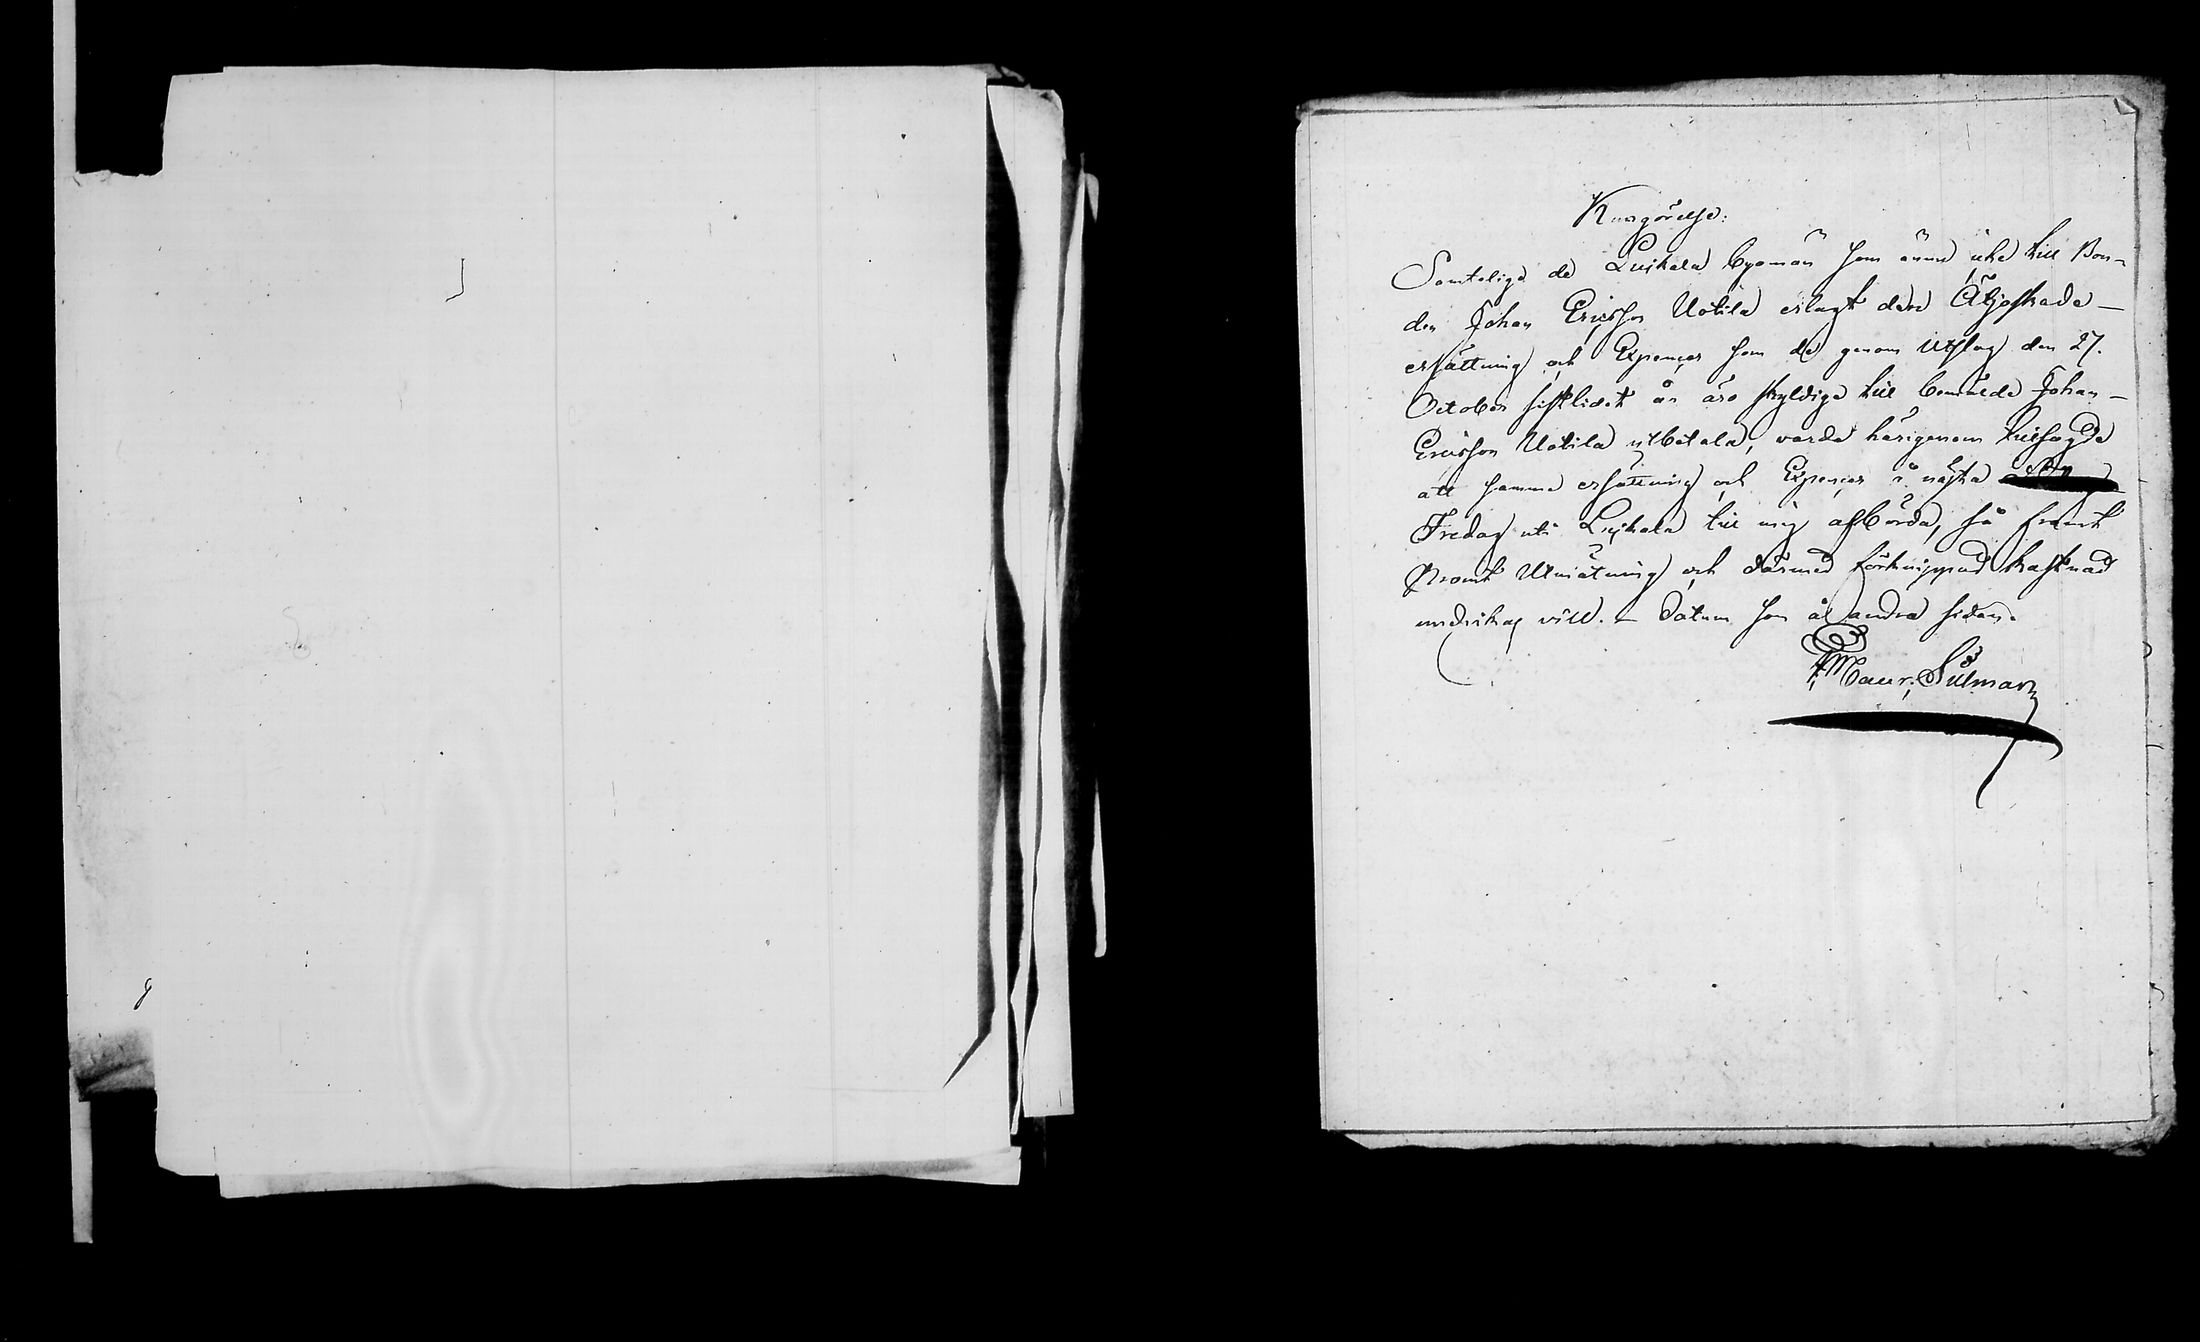 Kungörelse:
Samtelige de Luhkala byamän som ännu icke till Bon-
den Johan Ericsson Uotila erlagt dere Åtjoskade-
ersättning och Expenser som de genom Utslag den 27.
October sistlidit år äro skyldige till bemälde Johan
Ericsson Uotila utbetala, varda härigenom tillsagde
att samma ersättning och Expenser i nästa
Fredag uti Luhkala till mig afbörda, så framt
Promt Utmätning och därmed förknippad kostnad
undvikas vill. - Datum som å andra sidan.
Maur. Silman